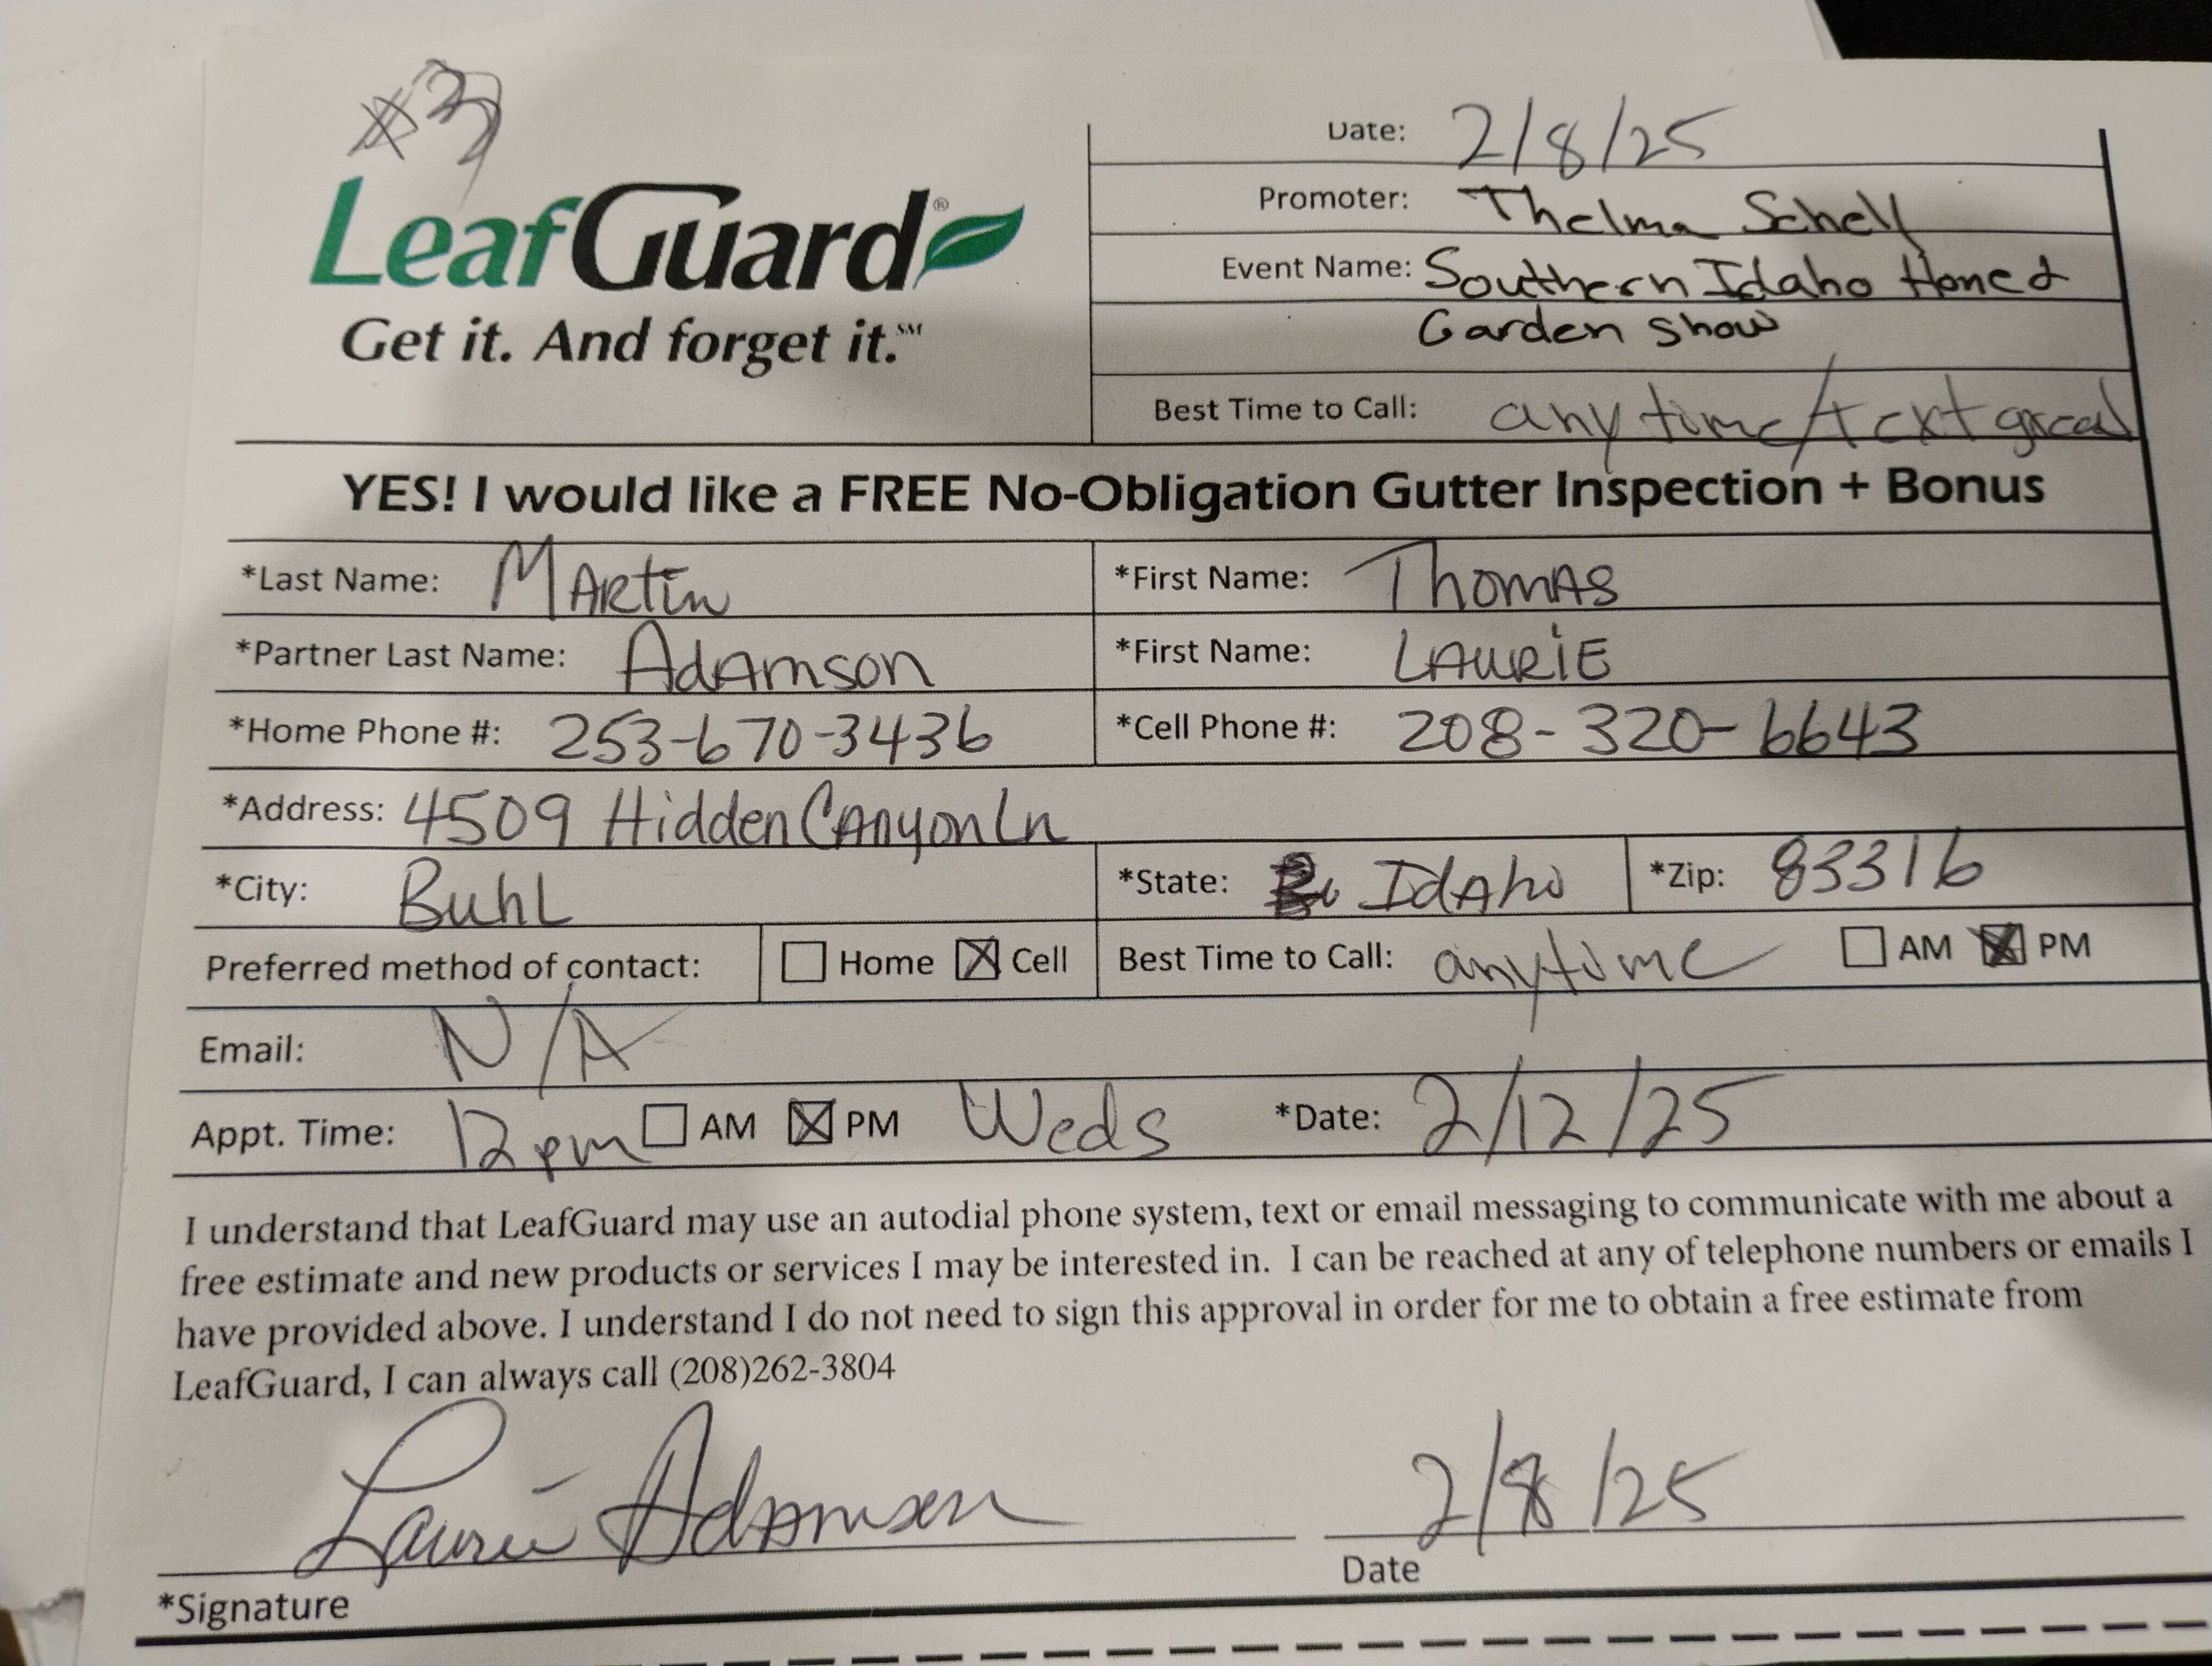 #3
LeafGuard®
Get it. And forget it.℠
Date: 2/8/25
Promoter: Thelma Schell
Event Name: Southern Idaho Home &
Garden Show
Best Time to Call: anytime/text great
YES! I would like a FREE No-Obligation Gutter Inspection + Bonus
*Last Name: Martin *First Name: Thomas
*Partner Last Name: Adamson *First Name: Laurie
*Home Phone #: 253-670-3436 *Cell Phone #: 208-320-6643
*Address: 4509 Hidden Canyon Ln
*City: Buhl *State: Idaho *Zip: 83316
Preferred method of contact: ☐ Home ☒ Cell Best Time to Call: anytime ☐ AM ☒ PM
Email: N/A
Appt. Time: 12pm ☐ AM ☒ PM Weds *Date: 2/12/25
I understand that LeafGuard may use an autodial phone system, text or email messaging to communicate with me about a
free estimate and new products or services I may be interested in. I can be reached at any of telephone numbers or emails I
have provided above. I understand I do not need to sign this approval in order for me to obtain a free estimate from
LeafGuard, I can always call (208)262-3804
Laurie Adamson 2/8/25
*Signature Date